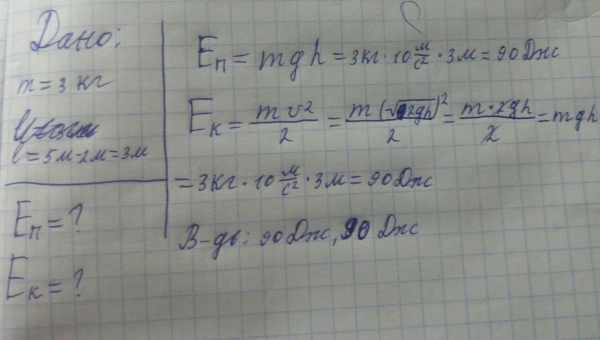 Дано:
m = 3 кг
l = 5м-2м = 3м
Eп = ?
Eк = ?
Eп = mgh = 3кг · 10 м/с² · 3м = 90 Дж
Eк = mv²/2 = m(√2gh)²/2 = m·2gh/2 = mgh
= 3кг · 10 м/с² · 3м = 90 Дж
В-дь: 90 Дж, 90 Дж